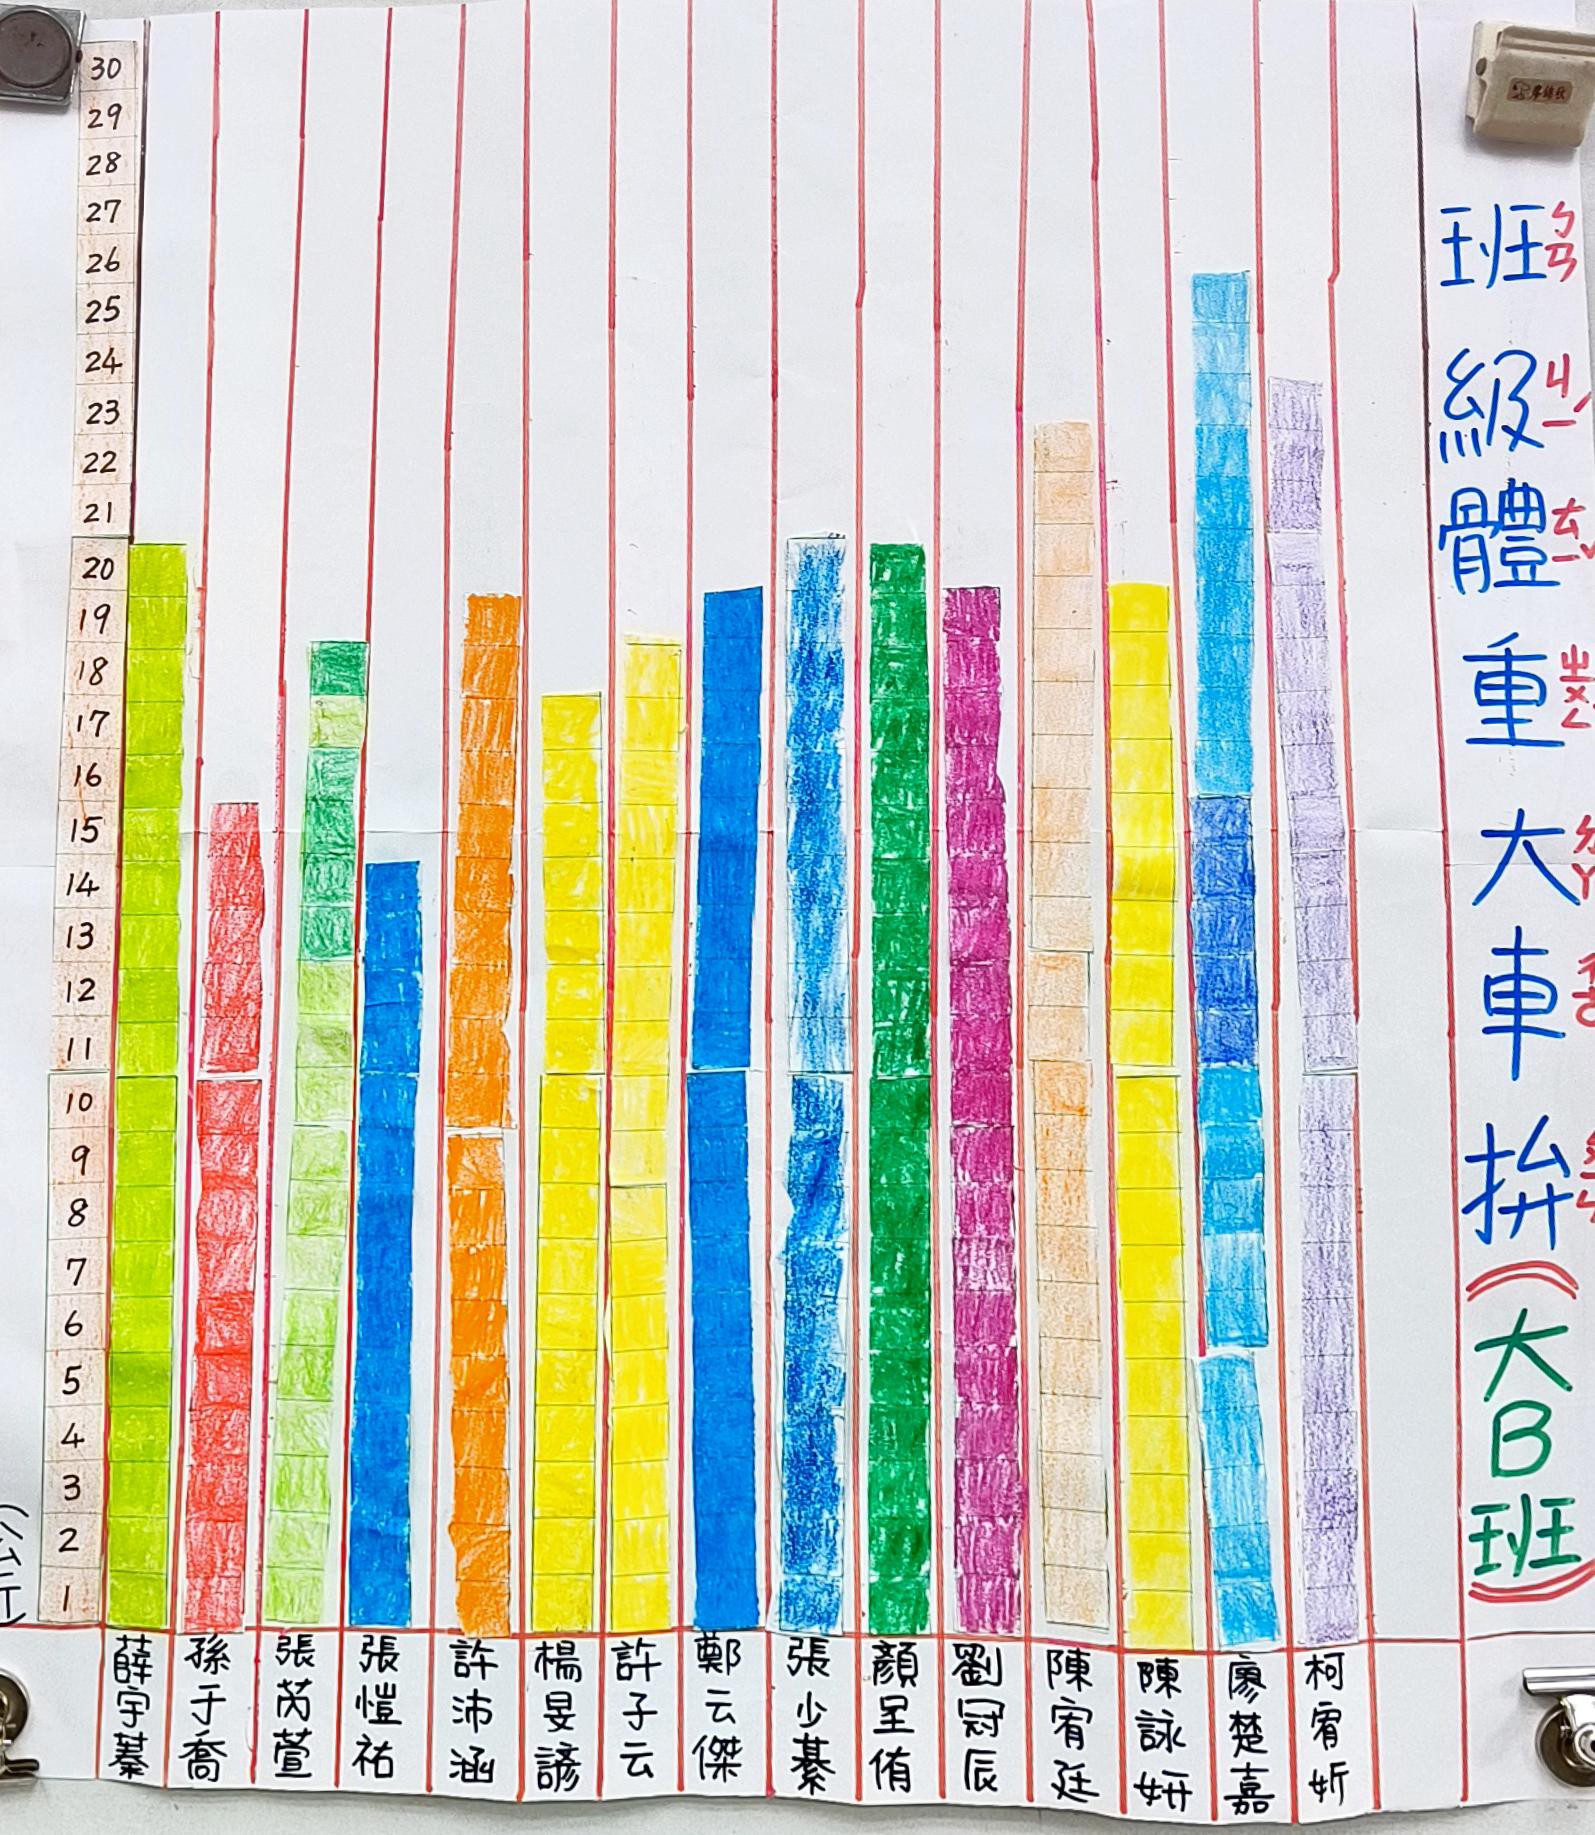 30
29
28
27
26
25
24
23
22
21
20
19
18
17
16
15
14
13
12
11
10
9
8
7
6
5
4
3
2
1
薛宇蓁
孫于喬
張芮萱
張愷祐
許沛涵
楊旻諺
許子云
鄭云傑
張少綦
顏呈侑
劉冠辰
陳宥廷
陳詠妍
廖楚嘉
柯宥妡
班級體重大車拚(大B班)
ㄅㄢ
ㄐㄧˊ